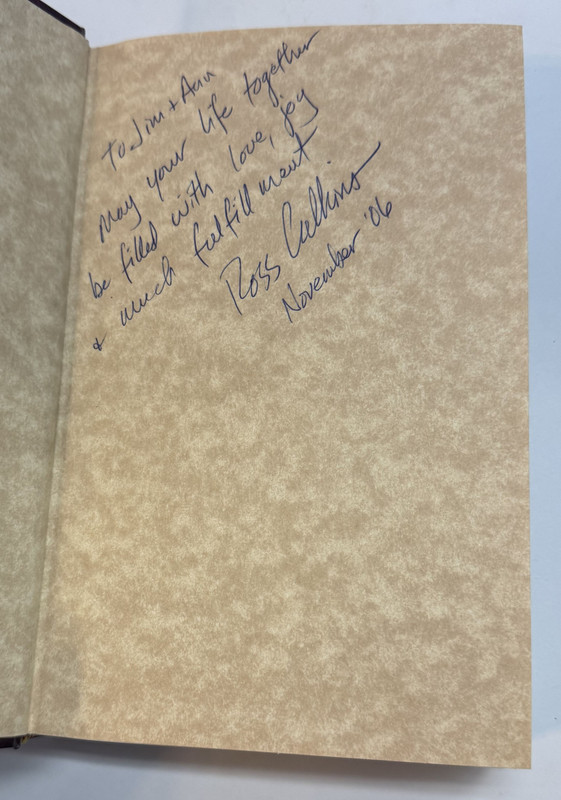 To Jim + Ann
May your life together
be filled with love, joy
& much fulfillment
Ross Calkins
November '06